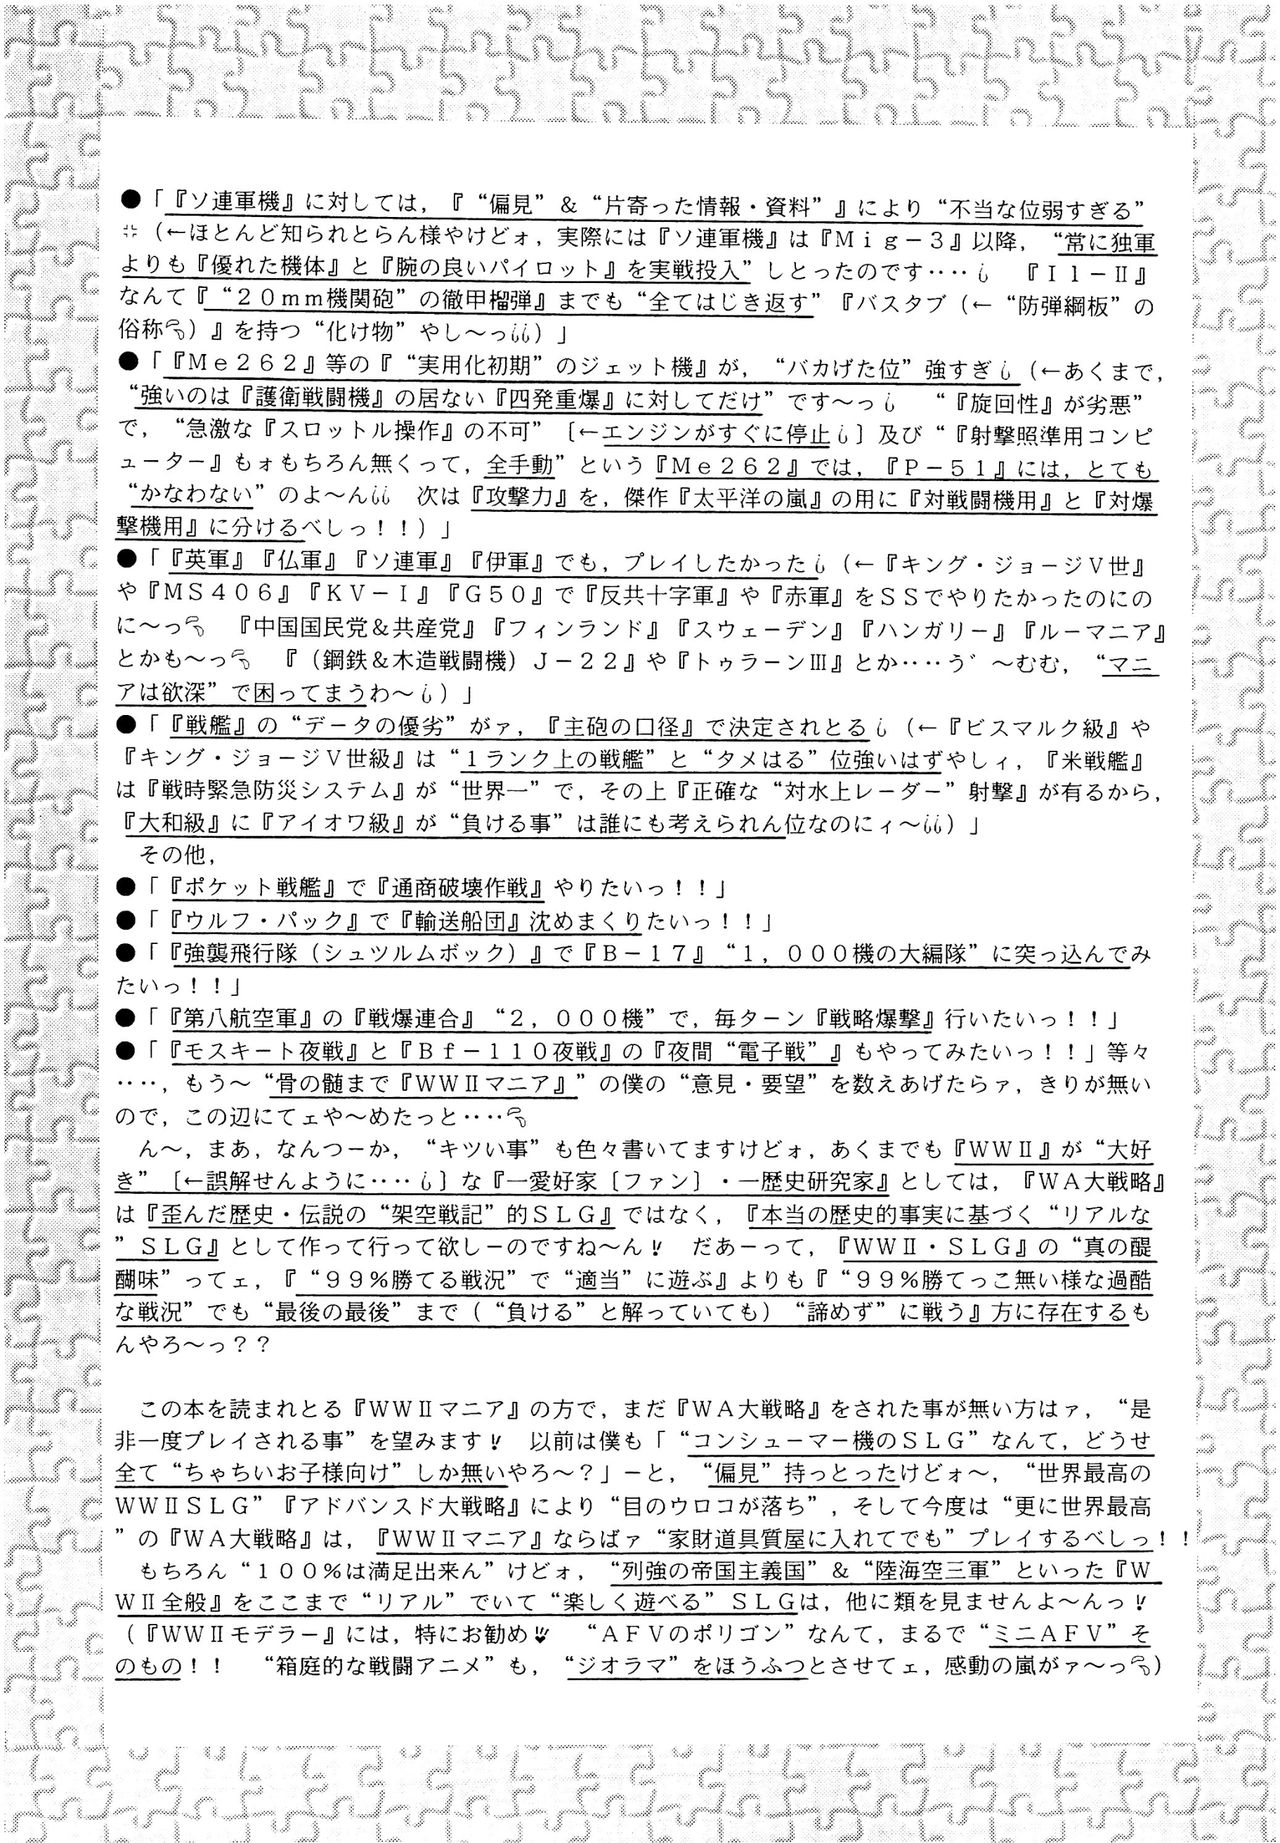 ●「『ソ連軍機』に対しては，『“偏見”＆“片寄った情報・資料”』により“不当な位弱すぎる”
（←ほとんど知られとらん様やけどォ，実際には『ソ連軍機』は『Ｍｉｇ－３』以降，“常に独軍
よりも『優れた機体』と『腕の良いパイロット』を実戦投入”しとったのです‥‥　『Ｉｌ－Ⅱ』
なんて『“２０ｍｍ機関砲”の徹甲榴弾』までも“全てはじき返す”『バスタブ（←“防弾鋼板”の
俗称）』を持つ“化け物”やし～っ）」
●「『Ｍｅ２６２』等の『“実用化初期”のジェット機』が，“バカげた位”強すぎ（←あくまで，
“強いのは『護衛戦闘機』の居ない『四発重爆』に対してだけ”です～っ　“『旋回性』が劣悪”
で，“急激な『スロットル操作』の不可”〔←エンジンがすぐに停止〕及び“『射撃照準用コンピ
ューター』もォもちろん無くって，全手動”という『Ｍｅ２６２』では，『Ｐ－５１』には，とても
“かなわない”のよ～ん　次は『攻撃力』を，傑作『太平洋の嵐』の用に『対戦闘機用』と『対爆
撃機用』に分けるべしっ！！）」
●「『英軍』『仏軍』『ソ連軍』『伊軍』でも，プレイしたかった（←『キング・ジョージⅤ世』
や『ＭＳ４０６』『ＫＶ－Ⅰ』『Ｇ５０』で『反共十字軍』や『赤軍』をＳＳでやりたかったのにの
に～っ　『中国国民党＆共産党』『フィンランド』『スウェーデン』『ハンガリー』『ルーマニア』
とかも～っ　『（鋼鉄＆木造戦闘機）Ｊ－２２』や『トゥラーンⅢ』とか‥‥う゛～むむ，“マニ
アは欲深”で困ってまうわ～）」
●「『戦艦』の“データの優劣”がァ，『主砲の口径』で決定されとる（←『ビスマルク級』や
『キング・ジョージⅤ世級』は“１ランク上の戦艦”と“タメはる”位強いはずやしィ，『米戦艦』
は『戦時緊急防災システム』が“世界一”で，その上『正確な“対水上レーダー”射撃』が有るから，
『大和級』に『アイオワ級』が“負ける事”は誰にも考えられん位なのにィ～）」
その他，
●「『ポケット戦艦』で『通商破壊作戦』やりたいっ！！」
●「『ウルフ・パック』で『輸送船団』沈めまくりたいっ！！」
●「『強襲飛行隊（シュツルムボック）』で『Ｂ－１７』“１，０００機の大編隊”に突っ込んでみ
たいっ！！」
●「『第八航空軍』の『戦爆連合』“２，０００機”で，毎ターン『戦略爆撃』行いたいっ！！」
●「『モスキート夜戦』と『Ｂｆ－１１０夜戦』の『夜間“電子戦”』もやってみたいっ！！」等々
‥‥，もう～“骨の髄まで『ＷＷⅡマニア』”の僕の“意見・要望”を数えあげたらァ，きりが無い
ので，この辺にてェや～めたっと‥‥
ん～，まあ，なんつーか，“キツい事”も色々書いてますけどォ，あくまでも『ＷＷⅡ』が“大好
き”〔←誤解せんように‥‥〕な『一愛好家〔ファン〕・一歴史研究家』としては，『ＷＡ大戦略』
は『歪んだ歴史・伝説の“架空戦記”的ＳＬＧ』ではなく，『本当の歴史的事実に基づく“リアルな
”ＳＬＧ』として作って行って欲しーのですね～ん！　だあーって，『ＷＷⅡ・ＳＬＧ』の“真の醍
醐味”ってェ，『“９９％勝てる戦況”で“適当”に遊ぶ』よりも『“９９％勝てっこ無い様な過酷
な戦況”でも“最後の最後”まで（“負ける”と解っていても）“諦めず”に戦う』方に存在するも
んやろ～っ？？
この本を読まれとる『ＷＷⅡマニア』の方で，まだ『ＷＡ大戦略』をされた事が無い方はァ，“是
非一度プレイされる事”を望みます！　以前は僕も「“コンシューマー機のＳＬＧ”なんて，どうせ
全て“ちゃちいお子様向け”しか無いやろ～？」－と，“偏見”持っとったけどォ～，“世界最高の
ＷＷⅡＳＬＧ”『アドバンスド大戦略』により“目のウロコが落ち”，そして今度は“更に世界最高
”の『ＷＡ大戦略』は，『ＷＷⅡマニア』ならばァ“家財道具質屋に入れてでも”プレイするべしっ！！
もちろん“１００％は満足出来ん”けどォ，“列強の帝国主義国”＆“陸海空三軍”といった『Ｗ
ＷⅡ全般』をここまで“リアル”でいて“楽しく遊べる”ＳＬＧは，他に類を見ませんよ～んっ！
（『ＷＷⅡモデラー』には，特にお勧め　“ＡＦＶのポリゴン”なんて，まるで“ミニＡＦＶ”そ
のもの！！　“箱庭的な戦闘アニメ”も，“ジオラマ”をほうふつとさせてェ，感動の嵐がァ～っ）